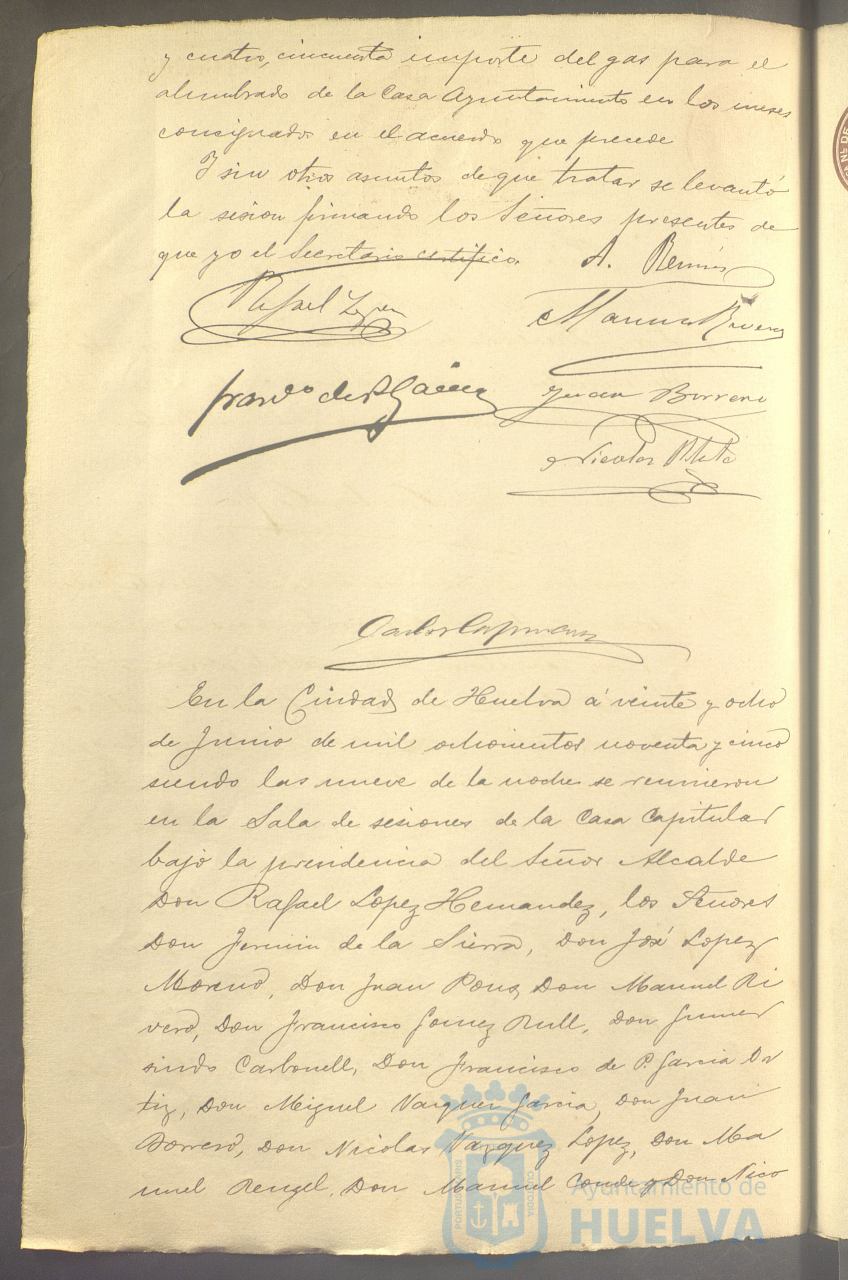 y cuatro, cincuenta importe del gas para el
alumbrado de la Casa Ayuntamiento en los meses
consignados en el acuerdo que precede
Y sin otros asuntos de que tratar se levantó
la sesion firmando los Señores presentes de
que yo el Secretario certifico.
A.
Rafael
Manuel Rivero
de
Juan Borrero
Nicolas
Carlos
En la Ciudad de Huelva á veinte y ocho
de Junio de mil ochocientos noventa y cinco
siendo las nueve de la noche se reunieron
en la Sala de sesiones de la Casa Capitular
bajo la presidencia del Señor Alcalde
Don Rafael Lopez Hernandez, los Señores
Don Fermin de la Sierra, Don José Lopez
Moreno, Don Juan Pons, Don Manuel Ri
vero, Don Francisco Gomez Rull, Don Gumer
sindo Carbonell, Don Francisco de P. Garcia Or
tiz, Don Miguel Vazquez Garcia, Don Juan
Borrero, Don Nicolas Vazquez Lopez, Don Ma
nuel Rengel, Don Manuel Conde y Don Nico
Ayuntamiento de
HUELVA